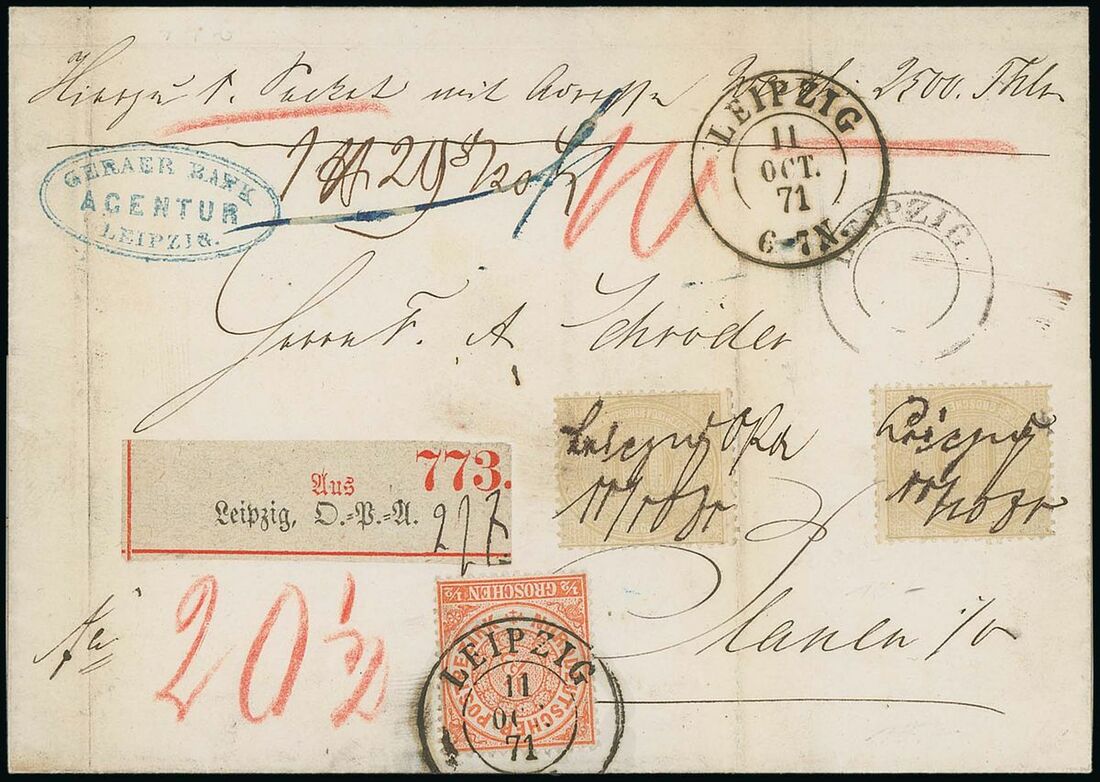 Hierzu 1. Packet mit Adresse Werth: 2500. Thlr
GERAER BANK
AGENTUR
LEIPZIG.
LEIPZIG
11
OCT.
71
6-7N
LEIPZIG
Herrn F. A Schröder
Aus
773.
Leipzig, O.=P.=A.
227
Leipzig OPA
11/10
Leipzig
11/10
Plauen i/v
20 1/2
1/2 GROSCHEN 1/2
LEIPZIG
11
OC.
71